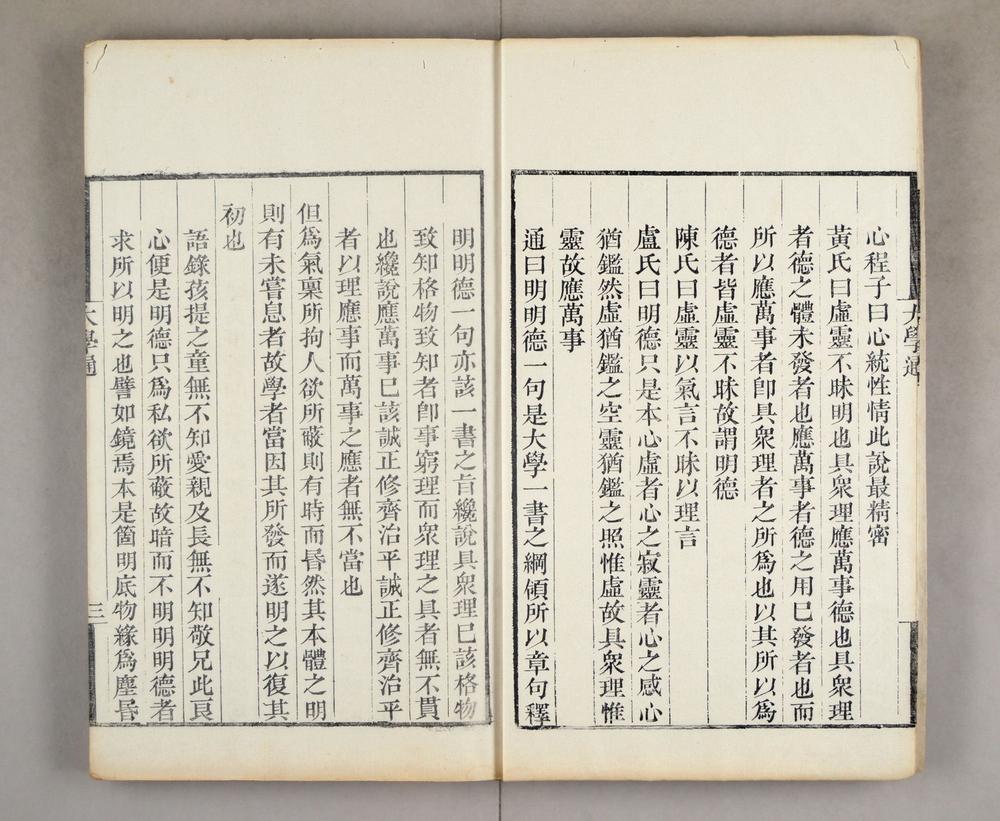 心程子曰心統性情此說最精密
黃氏曰虛靈不昧明也具衆理應萬事德也具衆理
者德之體未發者也應萬事者德之用已發者也而
所以應萬事者卽具衆理者之所爲也以其所以爲
德者皆虛靈不昧故謂明德
陳氏曰虛靈以氣言不昧以理言
盧氏曰明德只是本心虛者心之寂靈者心之感心
猶鑑然虛猶鑑之空靈猶鑑之照惟虛故具衆理惟
靈故應萬事
通曰明明德一句是大學一書之綱領所以章句釋
明明德一句亦該一書之旨纔說具衆理已該格物
致知格物致知者卽事窮理而衆理之具者無不貫
也纔說應萬事已該誠正修齊治平誠正修齊治平
者以理應事而萬事之應者無不當也
但爲氣稟所拘人欲所蔽則有時而昬然其本體之明
則有未嘗息者故學者當因其所發而遂明之以復其
初也
語錄孩提之童無不知愛親及長無不知敬兄此良
心便是明德只爲私欲所蔽故暗而不明明明德者
求所以明之也譬如鏡焉本是箇明底物緣爲塵昬
大學通
三
大學通